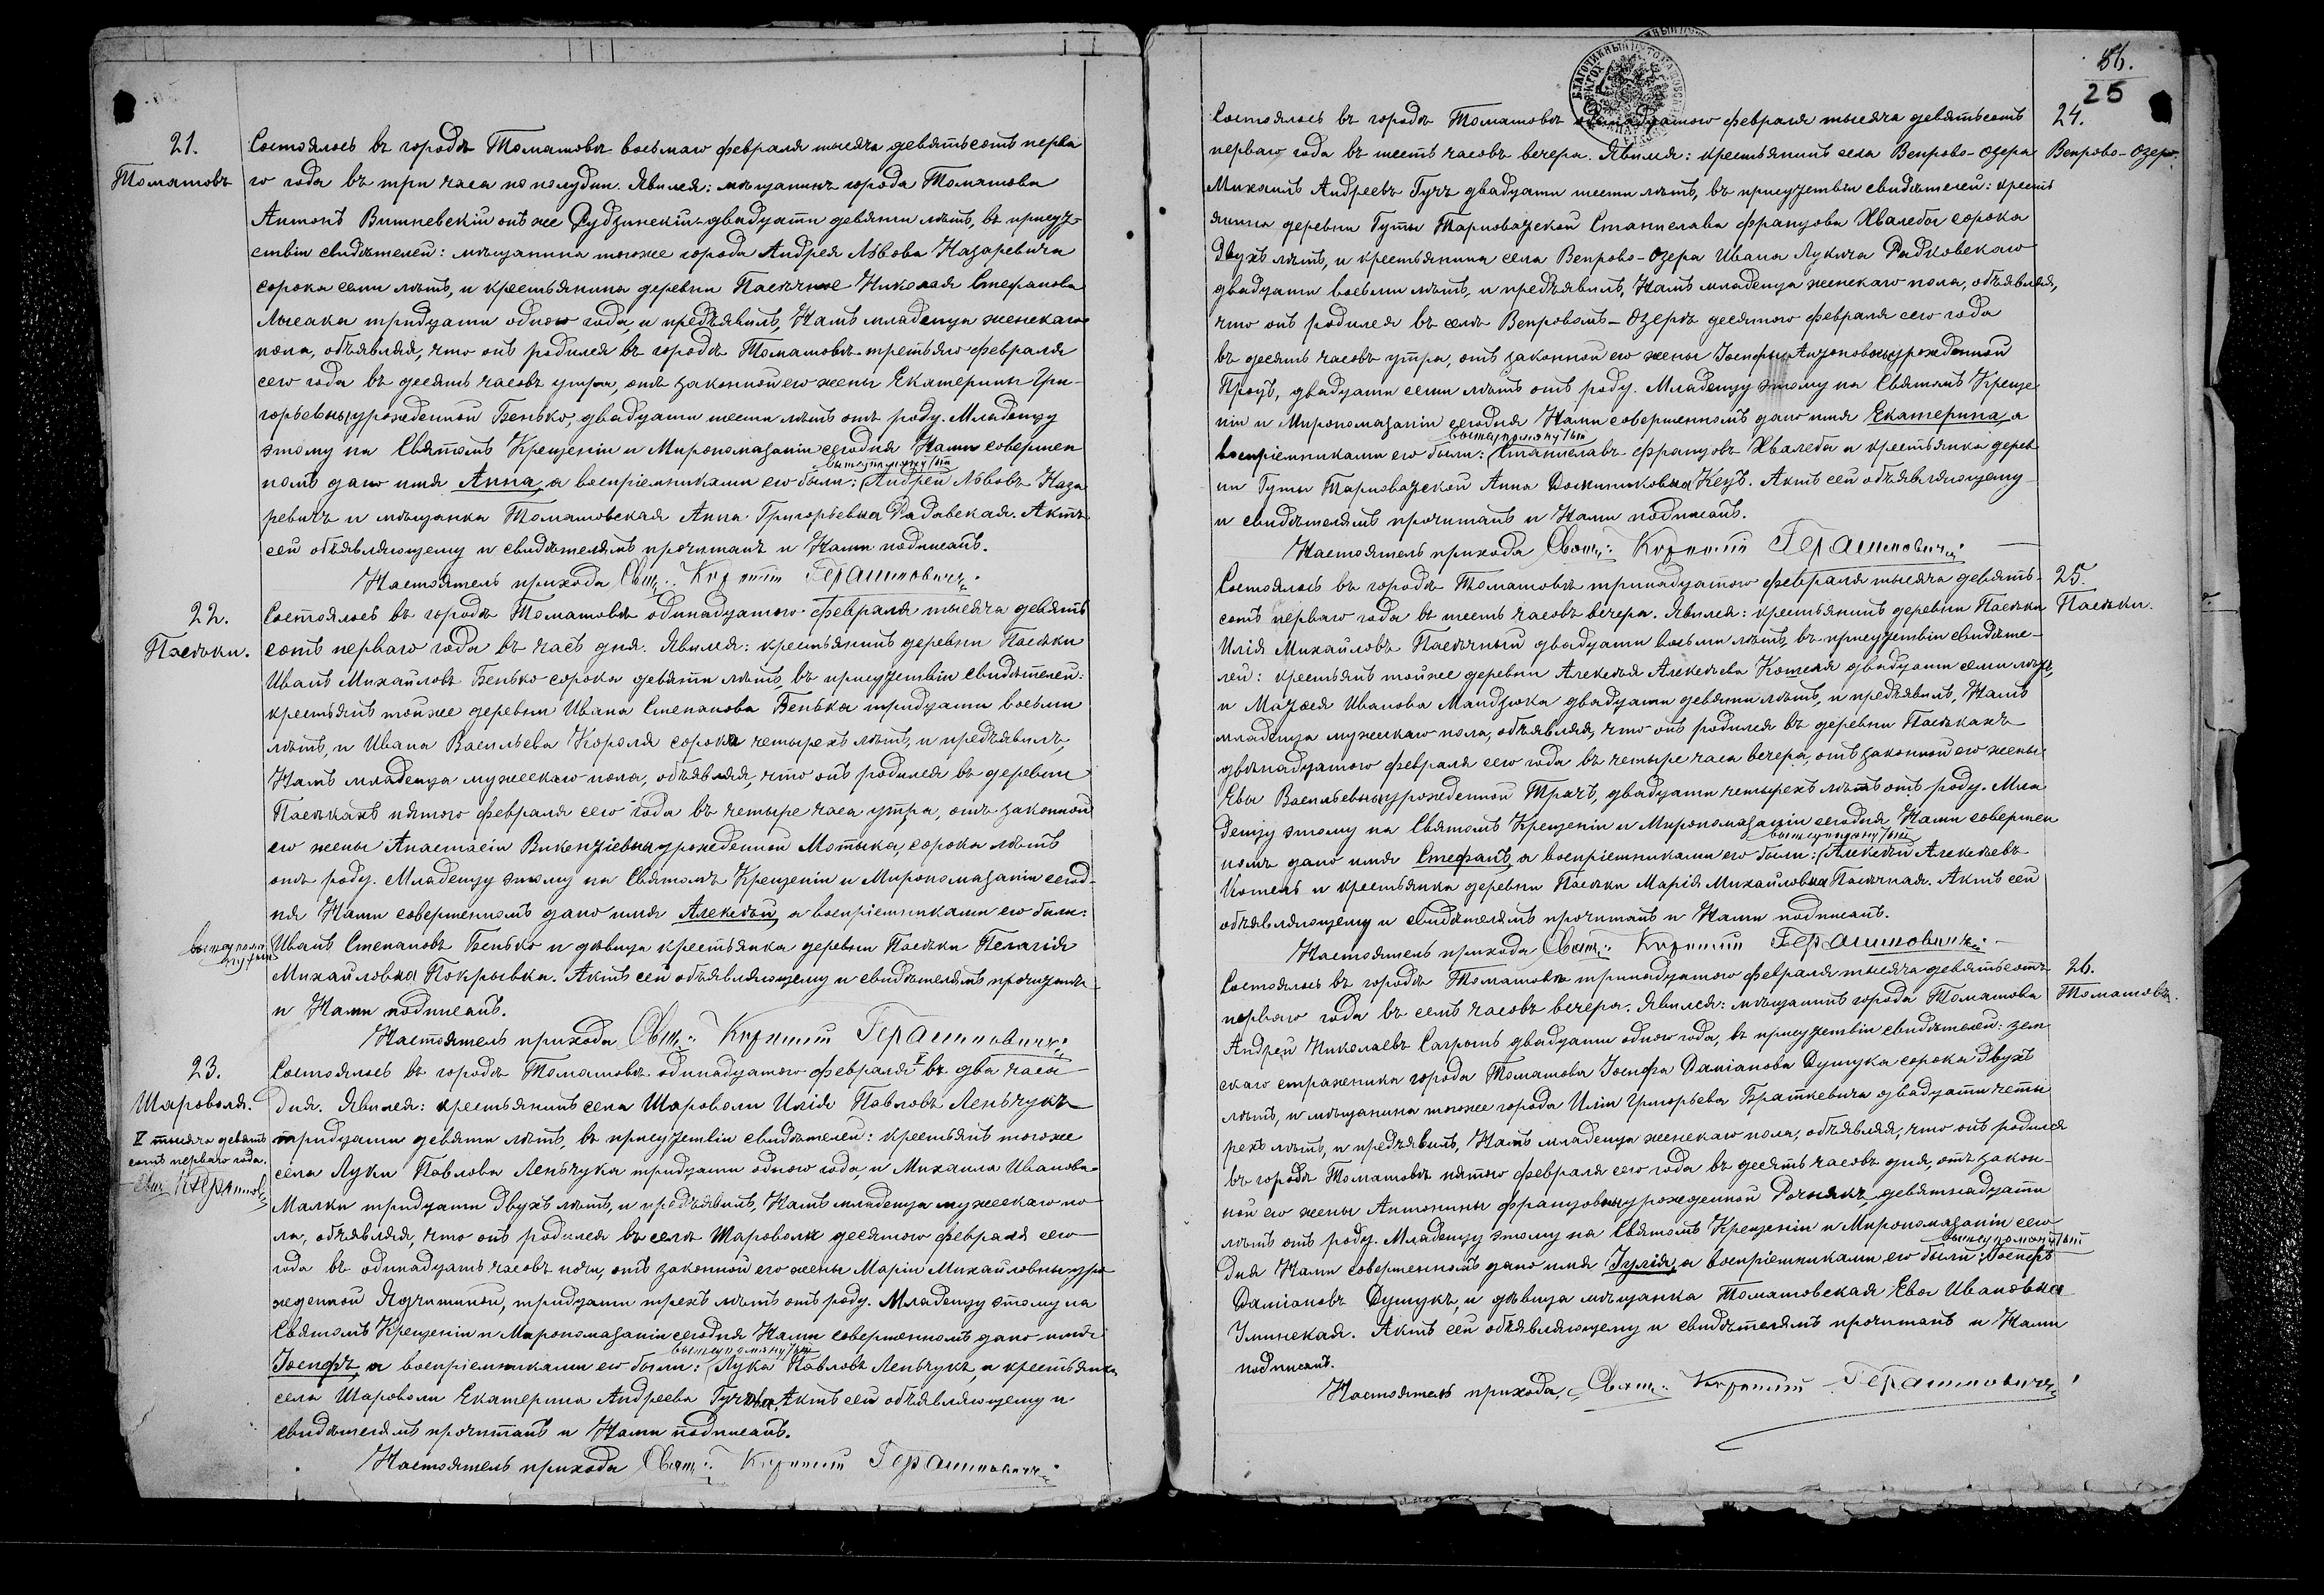 21.
Томашовъ
Состоялось въ городѣ Томашовѣ восьмаго февраля тысяча девятьсотъ перва
го года въ три часа по полудни. Явился: мѣщанинъ города Томашова
Антонъ Вишневскій онъ же Рудзинскій двадцати девяти лѣтъ, въ присут-
ствіи свидѣтелей: мѣщанина тогоже города Андрея Львова Назаревича
сорока семи лѣтъ, и крестьянина деревни Пасѣчное Николая Стефанова
Лысака тридцати одного года, и предъявилъ Намъ младенца женскаго
пола, объявляя, что онъ родился въ городѣ Томашовѣ третьяго февраля
сего года въ десять часовъ утра, отъ законной его жены Екатерины Гри-
горьевны урожденной Бенько, двадцати шести лѣтъ отъ роду. Младенцу
этому на Святомъ Крещеніи и Миропомазаніи сегодня Нами совершен
вышеупомянутый
номъ дано имя Анна, а воспріемниками его были: Андрей Львовъ Наза
ревичъ и мѣщанка Томашовская Анна Григорьевна Радавская. Актъ
сей объявляющему и свидѣтелямъ прочитанъ и Нами подписанъ.
Настоятель прихода Свящ: Корнилій Герашиновичъ
22.
Пасѣки.
Состоялось въ городѣ Томашовѣ одинадцатого февраля тысяча девять
сотъ перваго года въ часъ дня. Явился: крестьянинъ деревни Пасѣки
Иванъ Михайловъ Бенько сорока девяти лѣтъ, въ присутствіи свидѣтелей:
крестьянъ тойже деревни Ивана Степанова Бенька тридцати восьми
лѣтъ, и Ивана Васильева Короля сорока четырехъ лѣтъ, и предъявилъ
Намъ младенца мужескаго пола, объявляя, что онъ родился въ деревни
Пасѣкахъ пятого февраля сего года въ четыре часа утра, отъ законной
его жены Анастасіи Викентіевны урожденной Мотыка, сорока лѣтъ
отъ роду. Младенцу этому на Святомъ Крещеніи и Миропомазаніи сегод-
ня Нами совершенномъ дано имя Алексѣй, а воспріемниками его были:
вышеупомя
нутый
Иванъ Степановъ Бенько и дѣвица крестьянка деревни Пасѣки Пелагія
Михайловна Покрывка. Актъ сей объявляющему и свидѣтелямъ прочитанъ
и Нами подписанъ.
Настоятель прихода Свящ: Корнилій Герашиновичъ
23.
Шароволя.
Состоялось въ городѣ Томашовѣ одинадцатого февраля въ два часа
дня. Явился: крестьянинъ села Шароволи Илія Павловъ Леньчукъ
тысяча девять
сотъ перваго года.
тридцати девяти лѣтъ, въ присутствіи свидѣтелей: крестьянъ тогоже
села Луки Павлова Леньчука тридцати одного года, и Михаила Иванова
Малки тридцати двухъ лѣтъ, и предъявилъ Намъ младенца мужескаго по
ла, объявляя, что онъ родился въ селѣ Шароволѣ десятого февраля сего
года въ одинадцать часовъ ночи, отъ законной его жены Маріи Михайловны уро
жденной Ядчишиной, тридцати трехъ лѣтъ отъ роду. Младенцу этому на
Святомъ Крещеніи и Миропомазаніи сегодня Нами совершенномъ дано имя
вышеупомянутый
Іосифъ, а воспріемниками его были: Лука Павловъ Леньчукъ, и крестьянка
села Шароволи Екатерина Андреева Гучова. Актъ сей объявляющему и
свидѣтелямъ прочитанъ и Нами подписанъ.
Настоятель прихода Свящ: Корнилій Герашиновичъ
56.
25
24.
Вепрово-Озеро.
Состоялось въ городѣ Томашовѣ одинадцатого февраля тысяча девятьсотъ
перваго года въ шесть часовъ вечера. Явился: крестьянинъ села Вепрово-Озера
Михаилъ Андреевъ Гучъ двадцати шести лѣтъ, въ присутствіи свидѣтелей: кресть
янина деревни Гуты Тарноватской Станислава Францова Хвалебы сорока
двухъ лѣтъ, и крестьянина села Вепрово-Озера Ивана Лукича Радковскаго
двадцати восьми лѣтъ, и предъявилъ Намъ младенца женскаго пола, объявляя,
что онъ родился въ селѣ Вепровомъ-Озерѣ десятого февраля сего года
въ десять часовъ утра, отъ законной его жены Іосифы Антоновны урожденной
Проць, двадцати семи лѣтъ отъ роду. Младенцу этому на Святомъ Креще
ніи и Миропомазаніи сегодня Нами совершенномъ дано имя Екатерина, а
вышеупомянутый
воспріемниками его были: Станиславъ Францовъ Хвалеба и крестьянка дерев
ни Гуты Тарноватской Анна Доминиковна Кецъ. Актъ сей объявляющему
и свидѣтелямъ прочитанъ и Нами подписанъ.
Настоятель прихода Свящ: Корнилій Герашиновичъ
25.
Пасѣки.
Состоялось въ городѣ Томашовѣ тринадцатого февраля тысяча девять-
сотъ перваго года въ шесть часовъ вечера. Явился: крестьянинъ деревни Пасѣки
Илія Михайловъ Пасѣчный двадцати восьми лѣтъ, въ присутствіи свидѣте-
лей: крестьянъ тойже деревни Алексѣя Алексѣева Котеля двадцати семи лѣтъ,
и Матѳея Иванова Мандзюка двадцати девяти лѣтъ, и предъявилъ Намъ
младенца мужскаго пола, объявляя, что онъ родился въ деревни Пасѣкахъ
двѣнадцатого февраля сего года въ четыре часа вечера, отъ законной его жены
Евы Васильевны урожденной Трачъ, двадцати четырехъ лѣтъ отъ роду. Мла
денцу этому на Святомъ Крещеніи и Миропомазаніи сегодня Нами совершен
вышеупомянутый
номъ дано имя Стефанъ, а воспріемниками его были: Алексѣй Алексѣевъ
Котель и крестьянка деревни Пасѣки Марія Михайловна Пасѣчная. Актъ сей
объявляющему и свидѣтелямъ прочитанъ и Нами подписанъ.
Настоятель прихода Свящ: Корнилій Герашиновичъ
26.
Томашовъ.
Состоялось въ городѣ Томашовѣ тринадцатого февраля тысяча девятьсотъ
перваго года въ семь часовъ вечера. Явился: мѣщанинъ города Томашова
Андрей Николаевъ Сагромъ двадцати одного года, въ присутствіи свидѣтелей: зем
скаго стражника города Томашова Іосифа Даміанова Душука сорока двухъ
лѣтъ, и мѣщанина тогоже города Иліи Григорьева Браткевича двадцати четы
рехъ лѣтъ, и предъявилъ Намъ младенца женскаго пола, объявляя, что онъ родился
въ городѣ Томашовѣ пятого февраля сего года въ десять часовъ дня, отъ закон-
ной его жены Антонины Францовны урожденной Рочнякъ, девятнадцати
лѣтъ отъ роду. Младенцу этому на Святомъ Крещеніи и Миропомазаніи сего
вышеупомянутый
дня Нами совершенномъ дано имя Іулія, а воспріемниками его были: Іосифъ
Даміановъ Душукъ, и дѣвица мѣщанка Томашовская Ева Ивановна
Улинская. Актъ сей объявляющему и свидѣтелямъ прочитанъ и Нами
подписанъ.
Настоятель прихода, Свящ: Корнилій Герашиновичъ